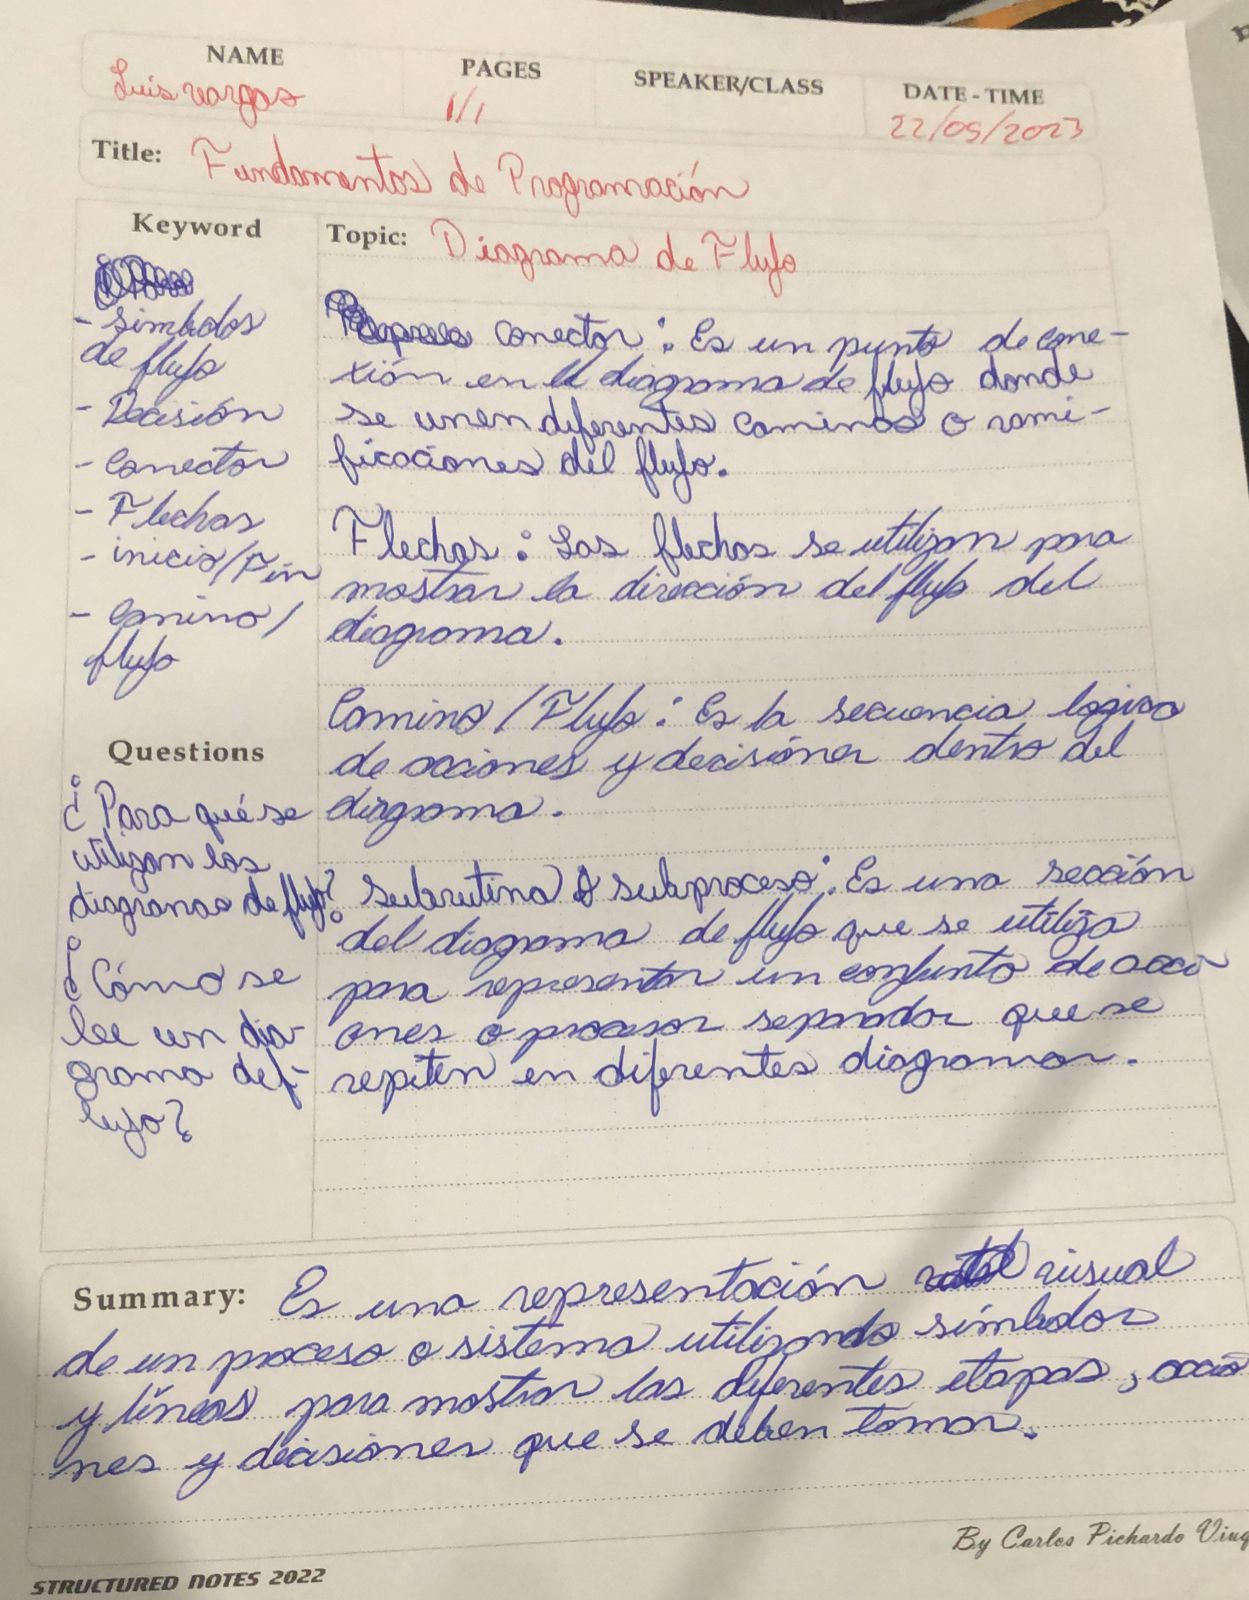 NAME
Luis vargas
PAGES
1/1
SPEAKER/CLASS
DATE - TIME
22/05/2023
Title: Fundamentos de Programación
Keyword
- simbolos
de flujo
- Decisión
- conector
- Flechas
- inicio/Fin
- Camino/
flujo
Questions
¿Para qué se
utilizan los
diagramas de flujo?
¿Cómo se
lee un dia-
grama de f-
lujo?
Topic: Diagrama de Flujo
conector: Es un punto de cone-
xión en el diagrama de flujo donde
se unen diferentes caminos o rami-
ficaciones del flujo.
Flechas: Las flechas se utilizan para
mostrar la dirección del flujo del
diagrama.
Camino/Flujo: Es la secuencia logica
de acciones y decisiónes dentro del
diagrama.
Subrutina o subproceso: Es una sección
del diagrama de flujo que se utiliza
para representar un conjunto de acci
ones o procesos separados que se
repiten en diferentes diagramas.
Summary: Es una representación visual
de un proceso o sistema utilizando símbolos
y líneas para mostrar las diferentes etapas, accio
nes y decisiones que se deben tomar.
By Carlos Pichardo Viuq
STRUCTURED NOTES 2022